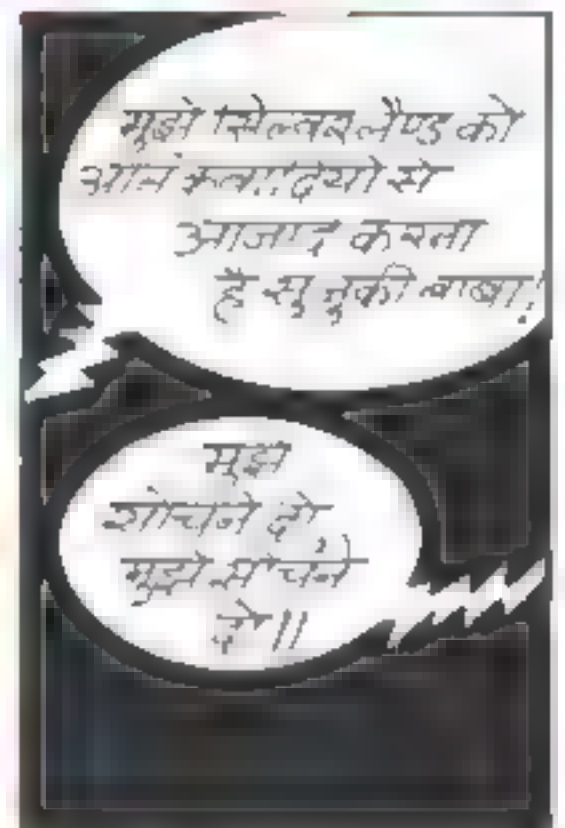 मुझे सिल्वरलैण्ड को
आतंकवादियो से
आजाद करना
है सुनुकी बाबा!
मुझे
सोचने दो,
मुझे सोचने
दो!!